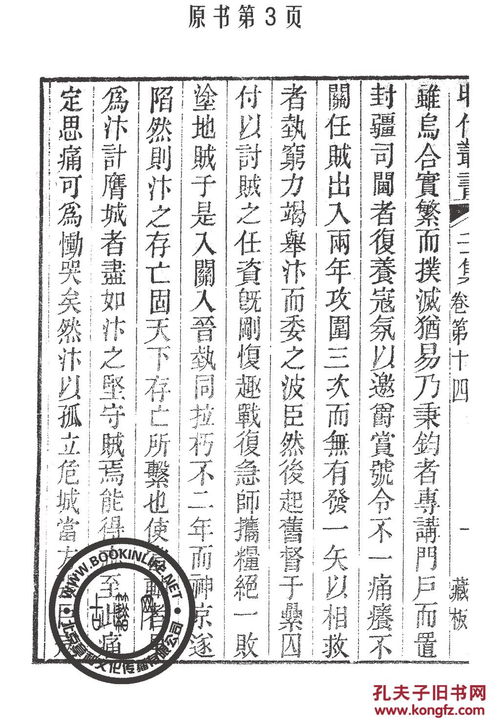 原书第3页
昭代叢書
壬集 卷第十四
一
藏板
雖烏合實繁而撲滅猶易乃秉鈞者專講門戶而置
封疆司閫者復養寇氛以邀爵賞號令不一痛癢不
關任賊出入兩年攻圍三次而無有發一矢以相救
者埶窮力竭舉汴而委之波臣然後起舊督于纍囚
付以討賊之任資旣剛愎趣戰復急師攜糧絕一敗
塗地賊子是入關入晉埶同拉朽不二年而神京遂
陷然則汴之存亡固天下存亡所繫也使
爲汴計膺城者盡如汴之堅守賊焉能得至此痛
定思痛可爲慟哭矣然汴以孤立危城當
WWW.BOOKINLIFE.NET
孔夫子旧书网
www.kongfz.com